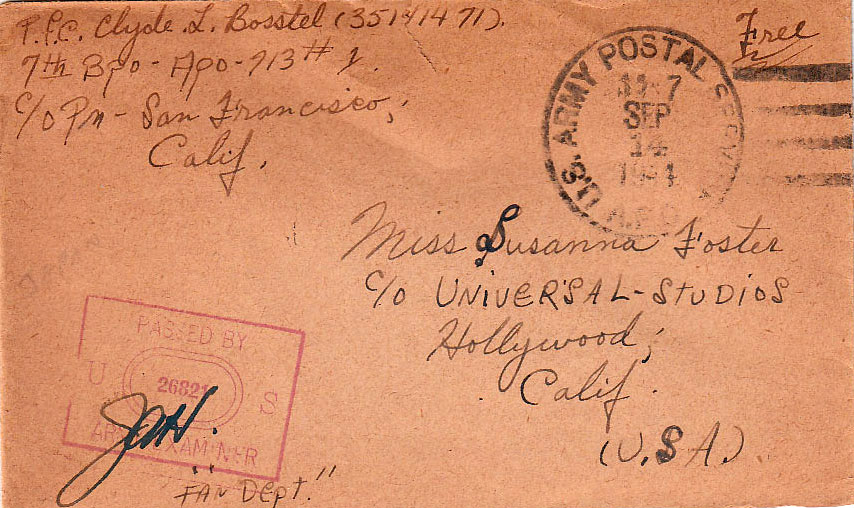 P.F.C. Clyde. L. Bosstel
7th Bpo - Apo - 713 # 1.
c/o Pm - San Francisco,
Calif.
Free
U.S. ARMY POSTAL SERVICE
SEP
14
A.P.O.
Miss Susanna Foster
c/o UNIVERSAL-STUDIOS
Hollywood,
Calif.
(U.S.A.)
PASSED BY
U S
ARMY EXAMINER
"FAN Dept."